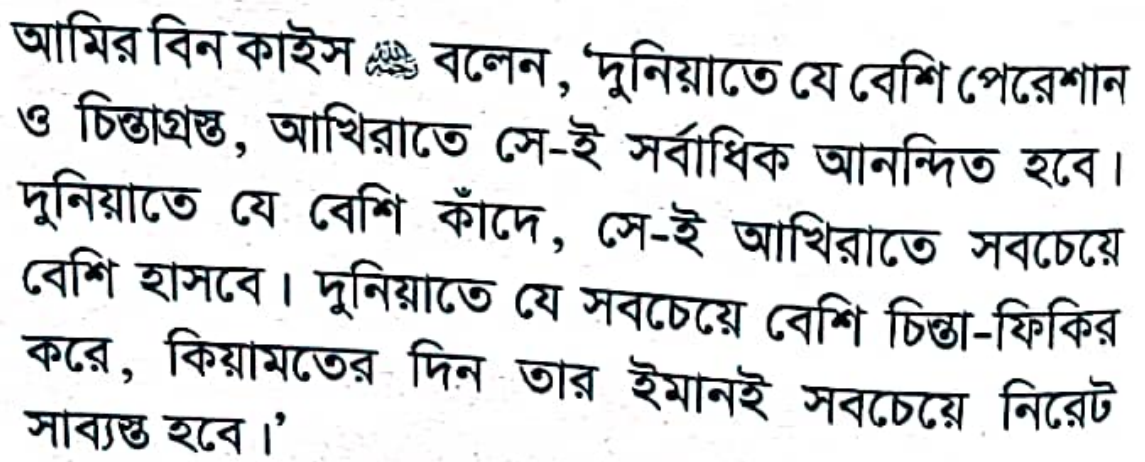 আমির বিন কাইস ﷬ বলেন, ‘দুনিয়াতে যে বেশি পেরেশান
ও চিন্তাগ্রস্ত, আখিরাতে সে-ই সর্বাধিক আনন্দিত হবে।
দুনিয়াতে যে বেশি কাঁদে, সে-ই আখিরাতে সবচেয়ে
বেশি হাসবে। দুনিয়াতে যে সবচেয়ে বেশি চিন্তা-ফিকির
করে, কিয়ামতের দিন তার ইমানই সবচেয়ে নিরেট
সাব্যস্ত হবে।’